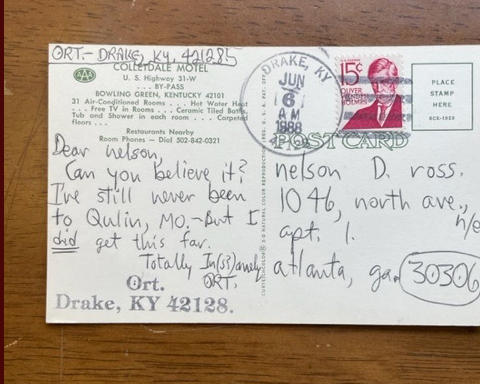 ORT.- DRAKE, KY. 42128
COLLETDALE MOTEL
U. S. Highway 31-W
. . . BY-PASS
BOWLING GREEN, KENTUCKY 42101
31 Air-Conditioned Rooms . . . Hot Water Heat
. . . Free TV in Rooms . . . Ceramic Tiled Baths,
Tub and Shower in each room . . . Carpeted
floors . . .
Restaurants Nearby
Room Phones — Dial 502-842-0321
Dear nelson,
Can you believe it?
I've still never been
to Qulin, MO.-But I
did get this far.
Totally In(s)anely
ORT.
Ort.
Drake, KY 42128.
DRAKE, KY
JUN
6
AM
1988
15¢
OLIVER
WENDELL
HOLMES
PLACE
STAMP
HERE
POST CARD
nelson D. ross.
1046, north ave.,
n/e
apt. 1.
atlanta, ga. 30306